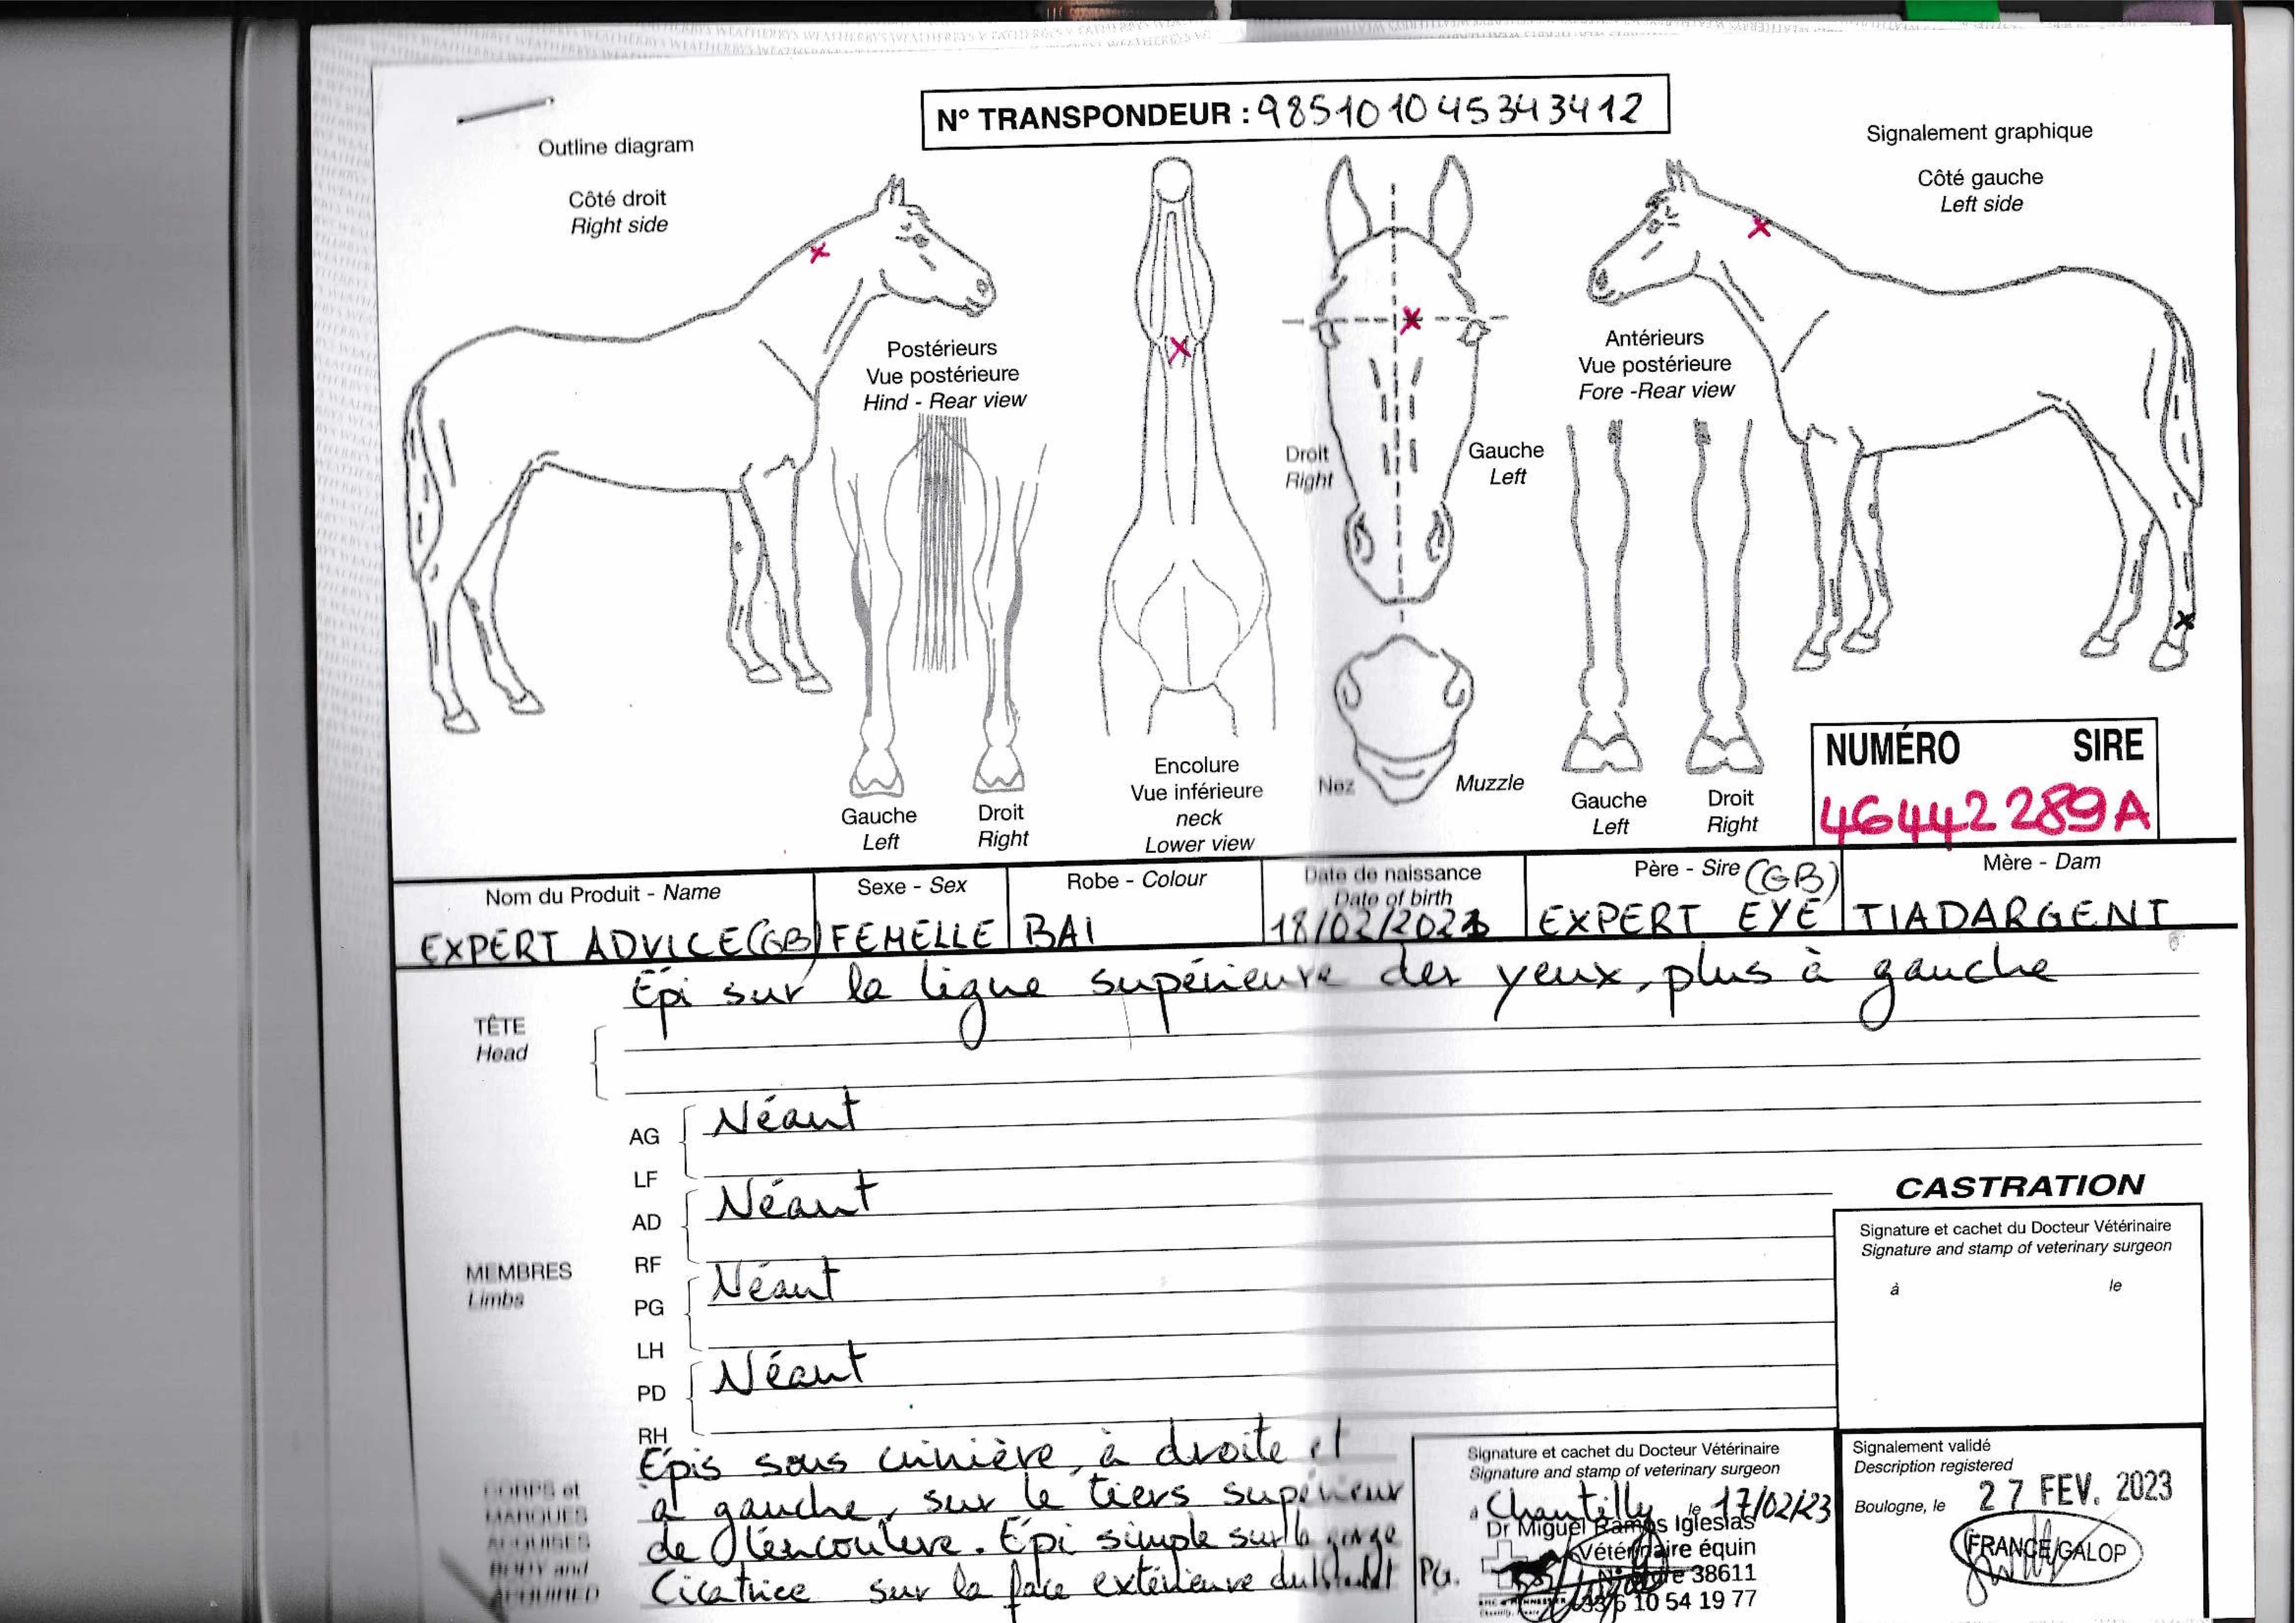 N° TRANSPONDEUR : 985101045343412
Outline diagram
Signalement graphique
Côté droit
Right side
Côté gauche
Left side
Postérieurs
Vue postérieure
Hind - Rear view
Antérieurs
Vue postérieure
Fore -Rear view
Droit
Right
Gauche
Left
Gauche
Left
Droit
Right
Encolure
Vue inférieure
neck
Lower view
Nez
Muzzle
Gauche
Left
Droit
Right
NUMÉRO SIRE
46442289A
Nom du Produit - Name
EXPERT ADVICE(GB)
Sexe - Sex
FEMELLE
Robe - Colour
BAI
Date de naissance
Date of birth
18/02/2021
Père - Sire (GB)
EXPERT EYE
Mère - Dam
TIADARGENT
TÊTE
Head
Épi sur la ligne supérieure des yeux, plus à gauche
MEMBRES
Limbs
AG
LF
Néant
AD
RF
Néant
PG
LH
Néant
PD
RH
Néant
CASTRATION
Signature et cachet du Docteur Vétérinaire
Signature and stamp of veterinary surgeon
à le
CORPS et
MARQUES
ACQUISES
BODY and
ACQUIRED
Épis sous crinière, à droite et
à gauche, sur le tiers supérieur
de l'encoulure. Épi simple sur la gorge
Cicatrice sur la face extérieure du PG.
Signature et cachet du Docteur Vétérinaire
Signature and stamp of veterinary surgeon
à Chantilly le 17/02/23
Dr Miguel Ramos Iglesias
Vétérinaire équin
38611
6 10 54 19 77
Signalement validé
Description registered
Boulogne, le 27 FEV. 2023
FRANCE GALOP